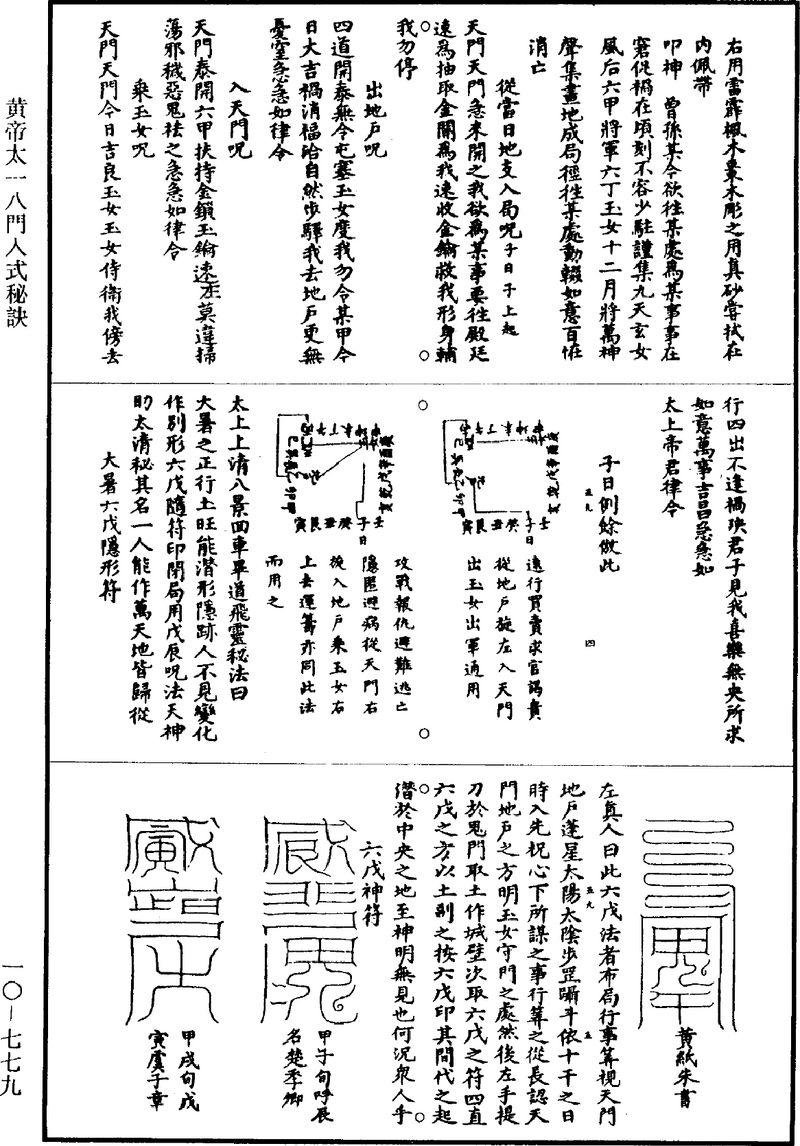 右用雷霹楓木棗木彫之用真砂嘗拭在
内佩帶
叩神 曾孫某今欲往某處爲某事事在
窘促禍在頃刻不容少駐謹集九天玄女
風后六甲將軍六丁玉女十二月將萬神
聲集畫地成局徑往某處動輟如意百怪
消亡
從當日地支入局呪子日子上起
天門天門急來開之我欲爲某事要往殿廷
速爲抽取金關爲我速收金鑰救我形身輔
我勿停
出地戶呪
四道開泰無令屯塞玉女度我勿令某甲今
日大吉禍消福洽自然步驛我去地戶更無
憂窒急急如律令
入天門呪
天門泰開六甲扶持金鎖玉鑰速莫違掃
蕩邪穢惡鬼祛之急急如律令
乘玉女呪
天門天門今日吉良玉女玉女侍衛我傍去
行四出不逢禍殃君子見我喜樂無央所求
如意萬事吉昌急急如
太上帝君律令
子日例餘倣此
五九
四
遠行買賣求官謁貴
從地戶旋左入天門
出玉女出軍通用
子日
攻戰報仇避難逃亡
隱匿避病從天門右
旋入地戶乘玉女右
上去運籌亦同此法
而用之
子日
太上上清八景四車畢道飛靈秘法曰
大暑之正行土旺能潛形隱跡人不見變化
作別形六戊隨符印開局用戊辰呪法天神
助太清秘其名一人能作萬天地皆歸從
大暑六戊隱形符
黄紙朱書
左真人曰此六戊法者布局行事筭視天門
地戶蓬星太陽太陰步罡躡斗依十干之日
五九
五
時入先祝心下所謀之事行筭之從長認天
門地戶之方明玉女守門之處然後左手提
刀於鬼門取土作城壁次取六戊之符四直
六戊之方以土副之按六戊印其間代之起
潛於中央之地至神明無見也何況衆人乎
六戊神符
甲子旬呼辰
名楚季卿
甲戌旬戊
寅虞子章
黄帝太一八門入式秘訣
一〇-七七九